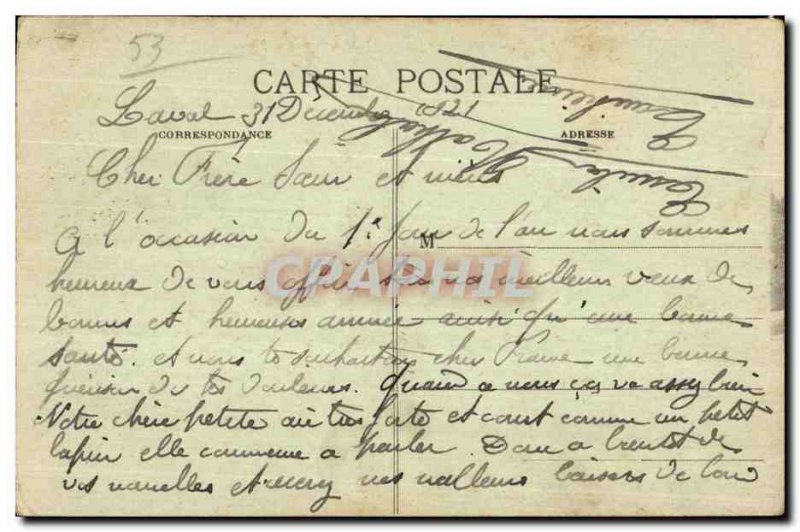 53
CARTE POSTALE
Laval 31 Décembre 1921
CORRESPONDANCE
ADRESSE
Cher Frère Sœur et nièce
A l'occasion du 1er Jour de l'an nous sommes
M
heureux de vous offrir nos meilleurs vœux de
CPRAPHIL
bonnes et heureuses année ainsi qu'une bonne
santé. et nous te souhaitons cher une bonne
guérison de tes douleurs. Quand a nous ça va assez bien
Notre chère petite est très forte et court comme un petit
lapin elle commence a parler. Donc a bientôt de
vos nouvelles et recevez nos meilleurs baisers de loin